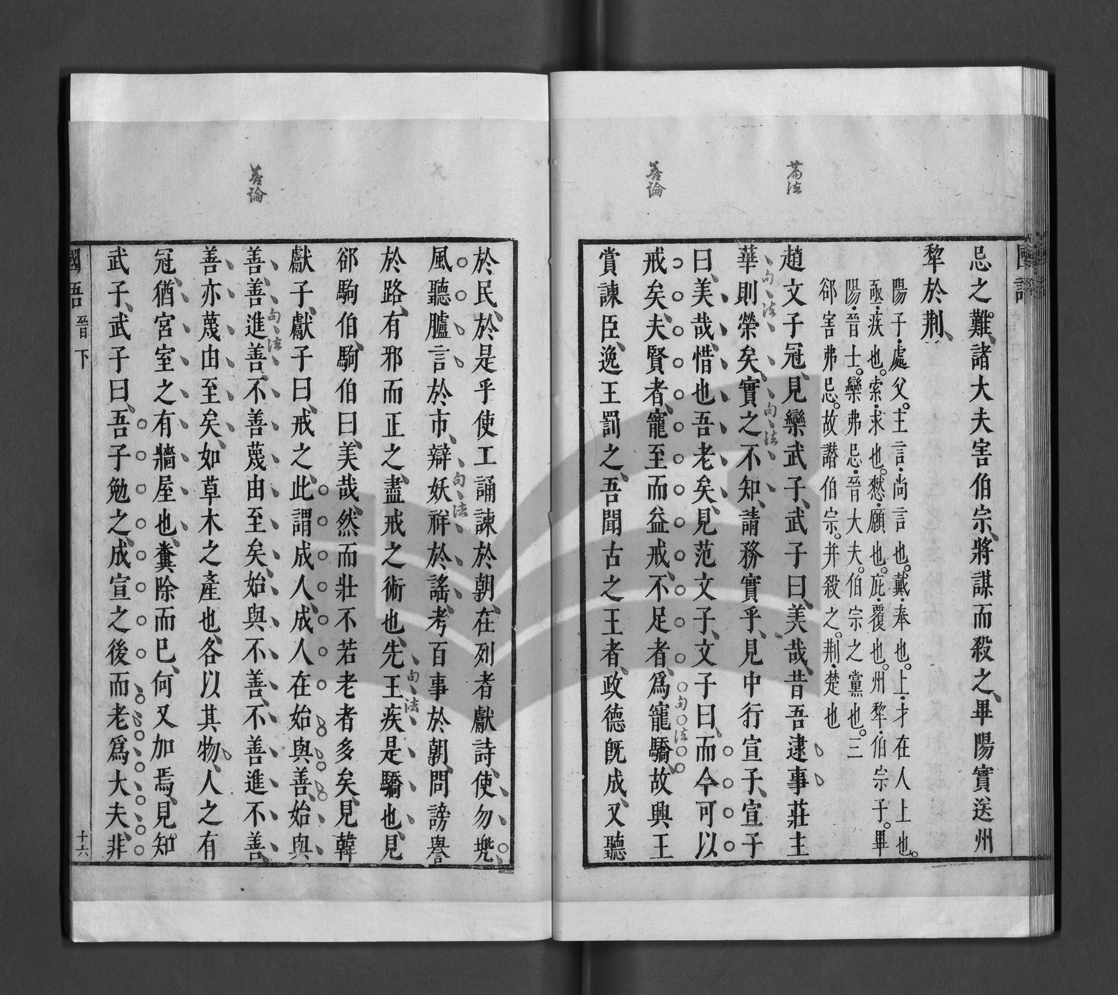 國語
忌之難、諸大夫害伯宗、將謀而殺之、畢陽實送州
犂於荆、
陽子、處父。主言、尚言也。戴、奉也。上、才在人上也。
亟、疾也。索、求也。憖、願也。庇、覆也。州犂、伯宗子。畢
陽、晉士。欒弗忌、晉大夫。伯宗之黨也。三
郤害弗忌。故譖伯宗。并殺之。荆、楚也
篇法
趙文子冠、見欒武子、武子曰、美哉、昔吾逮事莊主
華則榮矣、實之不知、請務實乎、見中行宣子、宣子
句法
句法
曰、美哉、惜也吾老矣、見范文子、文子曰、而今可以
善論
戒矣、夫賢者、寵至而益戒、不足者、爲寵驕、故興王
句法
賞諫臣、逸王罰之、吾聞古之王者、政德旣成、又聽
於民、於是乎使工誦諫於朝、在列者獻詩、使勿兠
風聽臚言於市、辯妖祥於謠、考百事於朝、問謗譽
句法
於路、有邪而正之、盡戒之術也、先王疾是驕也、見
句法
郤駒伯、駒伯曰、美哉、然而壯不若老者多矣、見韓
獻子、獻子曰、戒之、此謂成人、成人在始與善、始與
善論
善、善進善、不善蔑由至矣、始與不善、不善進不善、
句法
善亦蔑由至矣、如草木之產也、各以其物、人之有
冠、猶宮室之有牆屋也、糞除而已、何又加焉、見知
武子、武子曰、吾子勉之、成宣之後而老爲大夫、非
國語 晉下 十六